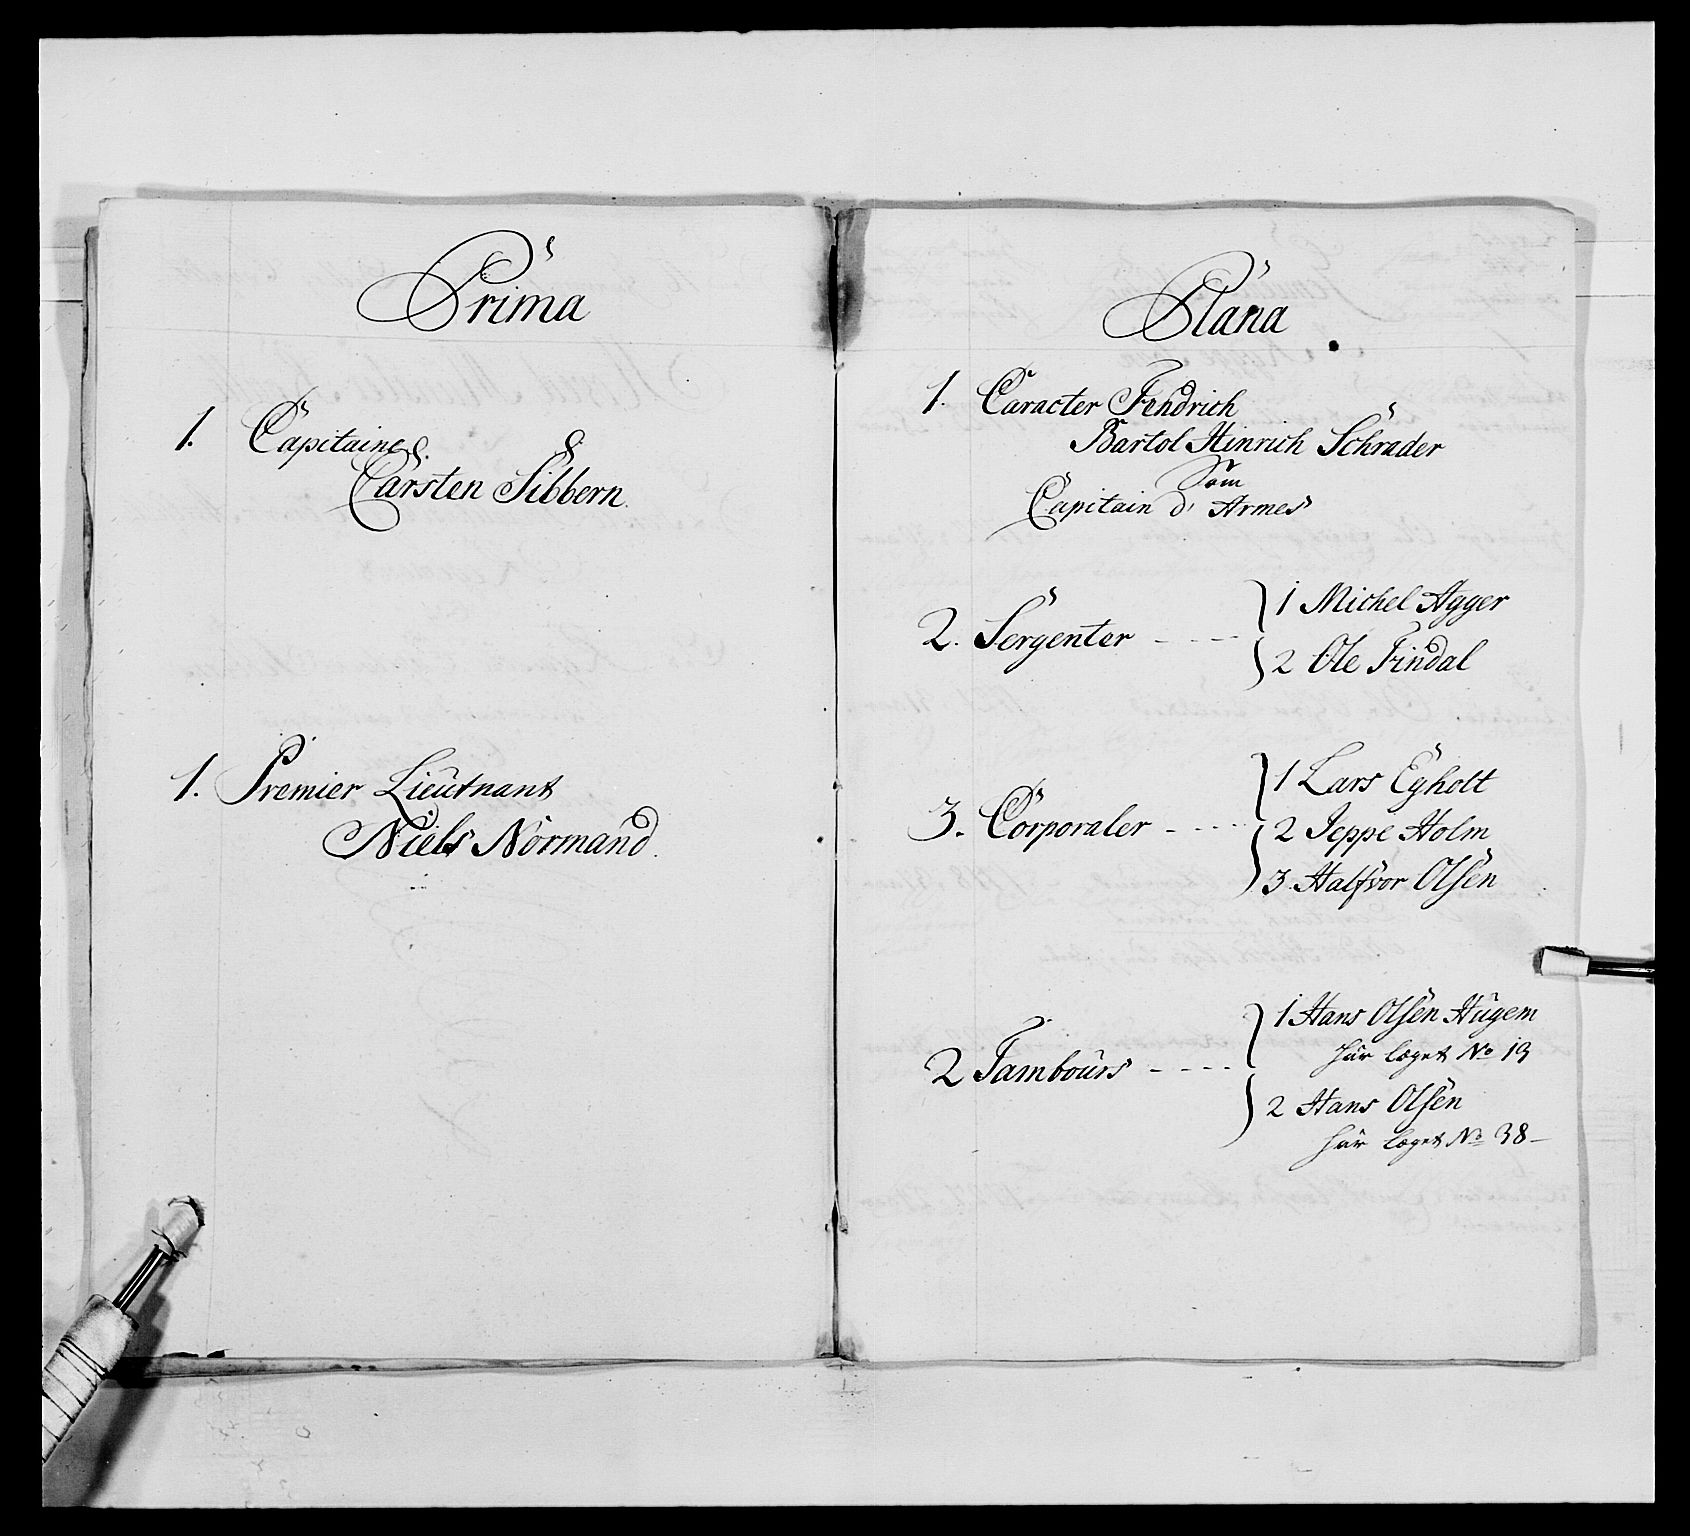 Prima
1. Capitaine
Carsten Sibbern.
1. Premier Lieutnant
Niels Normand.
Plana
1. Caracter Fendrich
Bartol Hinrich Schrader
Som
Capitain d' Armes
2. Sergenter - - - -
1 Michel Agger
2 Ole Findal
3. Corporaler - - - -
1 Lars Eyholt
2 Jeppe Holm
3. Halfvor Olsen
2 Tambours - - - -
1 Hans Olsen Hugem
har læget No 19
2 Hans Olsen
har læget No 38 -